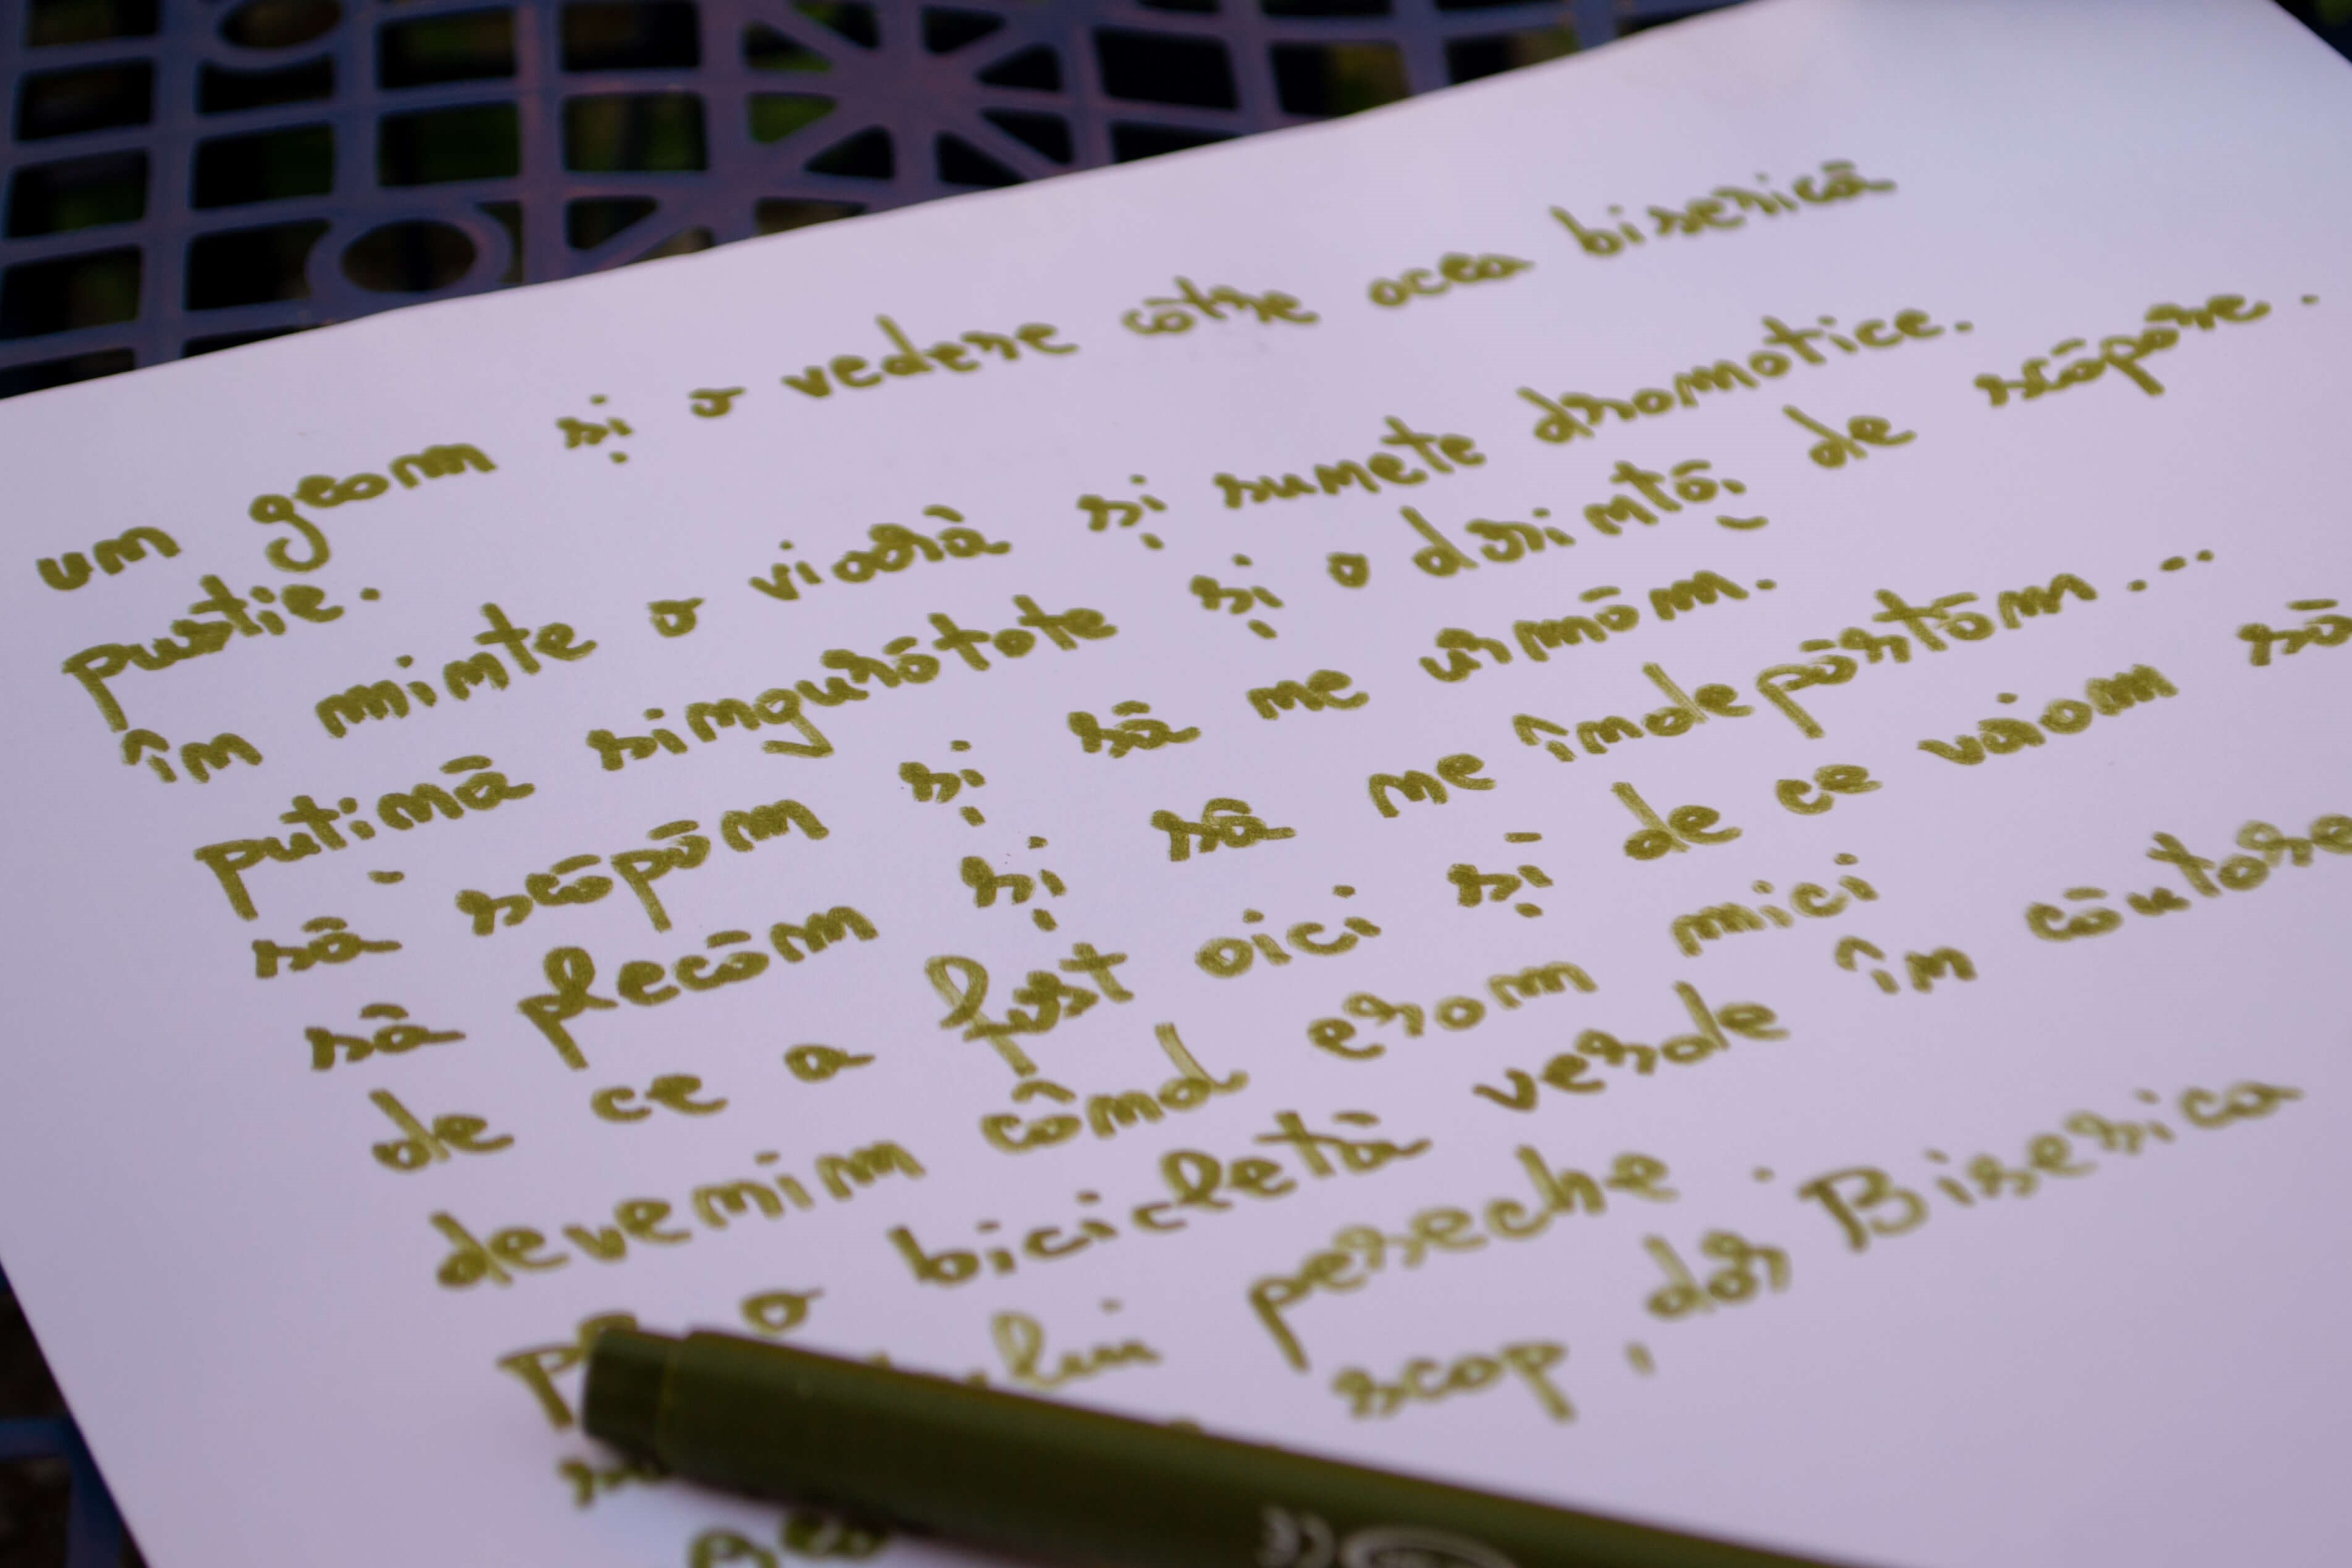 un geam și o vedere către acea biserică
pustie.
în minte o vioară și sunete dramatice.
puțină singurătate și o dorință de scăpare.
să scăpăm și să ne urmăm.
să plecăm și să ne îndepărtăm...
de ce a fost aici și de ce voiam să
devenim când eram mici
pe o bicicletă verde în căutare
lui pereche.
scop, dar Biserica